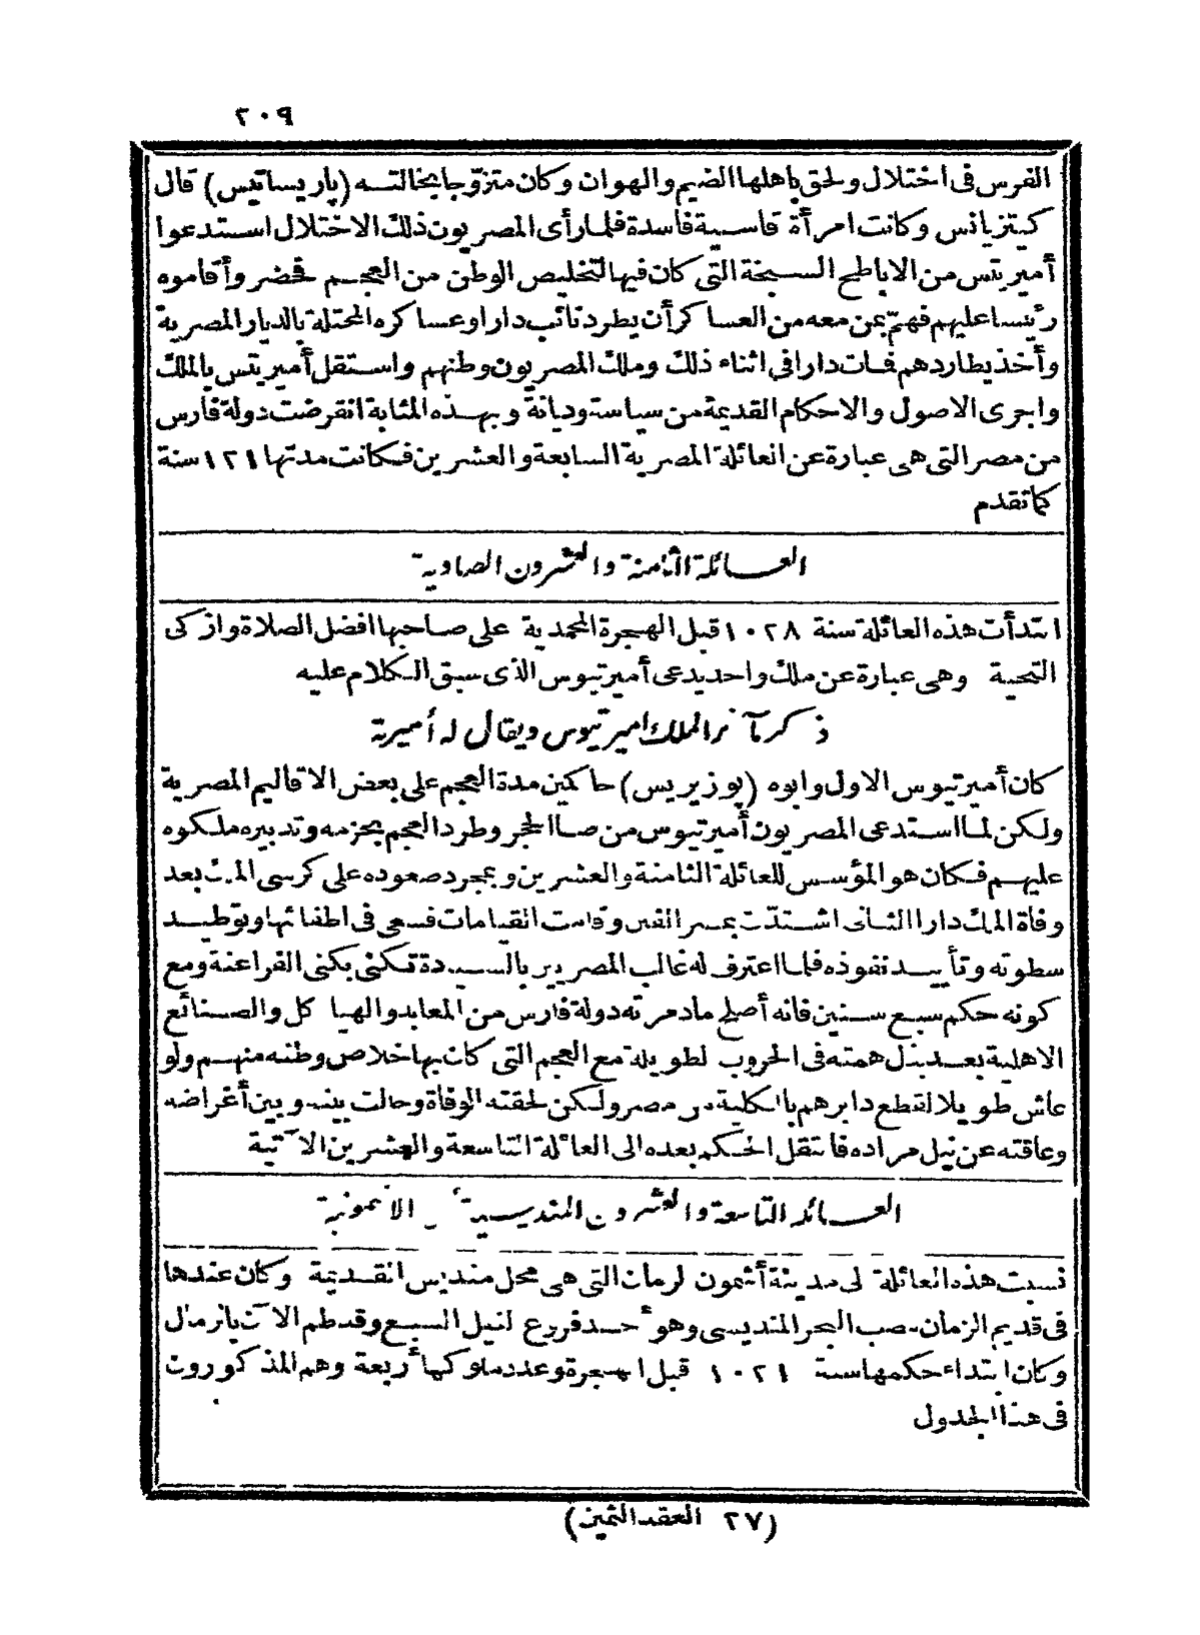 ٢٠٩
الفرس فى اختلال ولحق باهلها الضيم والهوان وكان متزوجا بخالته (پاريساتيس) قال
كيتزيانس وكانت امرأة قاسية فاسدة فلما رأى المصريون ذلك الاختلال استدعوا
أميريتس من الاباطح السبخة التى كان فيها لتخليص الوطن من العجم فحضر وأقاموه
رئيسا عليهم فهمّ بمن معه من العساكر أن يطرد نائب دارا وعساكره المحتلة بالديار المصرية
وأخذ يطاردهم فمات دارا فى اثناء ذلك وملك المصريون وطنهم واستقل أميريتس بالملك
واجرى الاصول والاحكام القديمة من سياسة وديانة وبهذه المثابة انقرضت دولة فارس
من مصر التى هى عبارة عن العائلة المصرية السابعة والعشرين فكانت مدتها ١٢١ سنة
كما تقدم
العائلة الثامنة والعشرون الصاوية
ابتدأت هذه العائلة سنة ١٠٢٨ قبل الهجرة المحمدية على صاحبها افضل الصلاة وازكى
التحية وهى عبارة عن ملك واحد يدعى أميرتيوس الذى سبق الكلام عليه
ذكر مآثر الملك اميرتيوس ويقال له أميرتة
كان أميرتيوس الاول وابوه (پوزيريس) حاكمين مدة العجم على بعض الاقاليم المصرية
ولكن لما استدعى المصريون أميرتيوس من صا الحجر وطرد العجم بحزمه وتدبيره ملكوه
عليهم فكان هو المؤسس للعائلة الثامنة والعشرين وبمجرد صعوده على كرسى الملك بعد
وفاة الملك دارا الثانى اشتدّت بمصر الفتن وقامت القيامات فسعى فى اطفائها وتوطيد
سطوته وتأييد نفوذه فلما اعترف له غالب المصريين بالسيادة تكنى بكنى الفراعنة ومع
كونه حكم سبع سنين فانه أصلح ما دمرته دولة فارس من المعابد والهياكل والصنائع
الاهلية بعد بذل همته فى الحروب الطويلة مع العجم التى كان بها خلاص وطنه منهم ولو
عاش طويلا لقطع دابرهم بالكلية من مصر ولكن لحقته الوفاة وحالت بينه وبين أغراضه
وعاقته عن نيل مراده فانتقل الحكم بعده الى العائلة التاسعة والعشرين الآتية
العائلة التاسعة والعشرون المنديسية أى الاشمونية
نسبت هذه العائلة الى مدينة أشمون الرمان التى هى محل منديس القديمة وكان عندها
فى قديم الزمان مصب البحر المنديسى وهو أحد فروع النيل السبع وقد طم الآن بالرمال
وكان ابتداء حكمها سنة ١٠٢١ قبل الهجرة وعدد ملوكها أربعة وهم المذكورون
فى هذا الجدول
(٢٧ العقد الثمين)